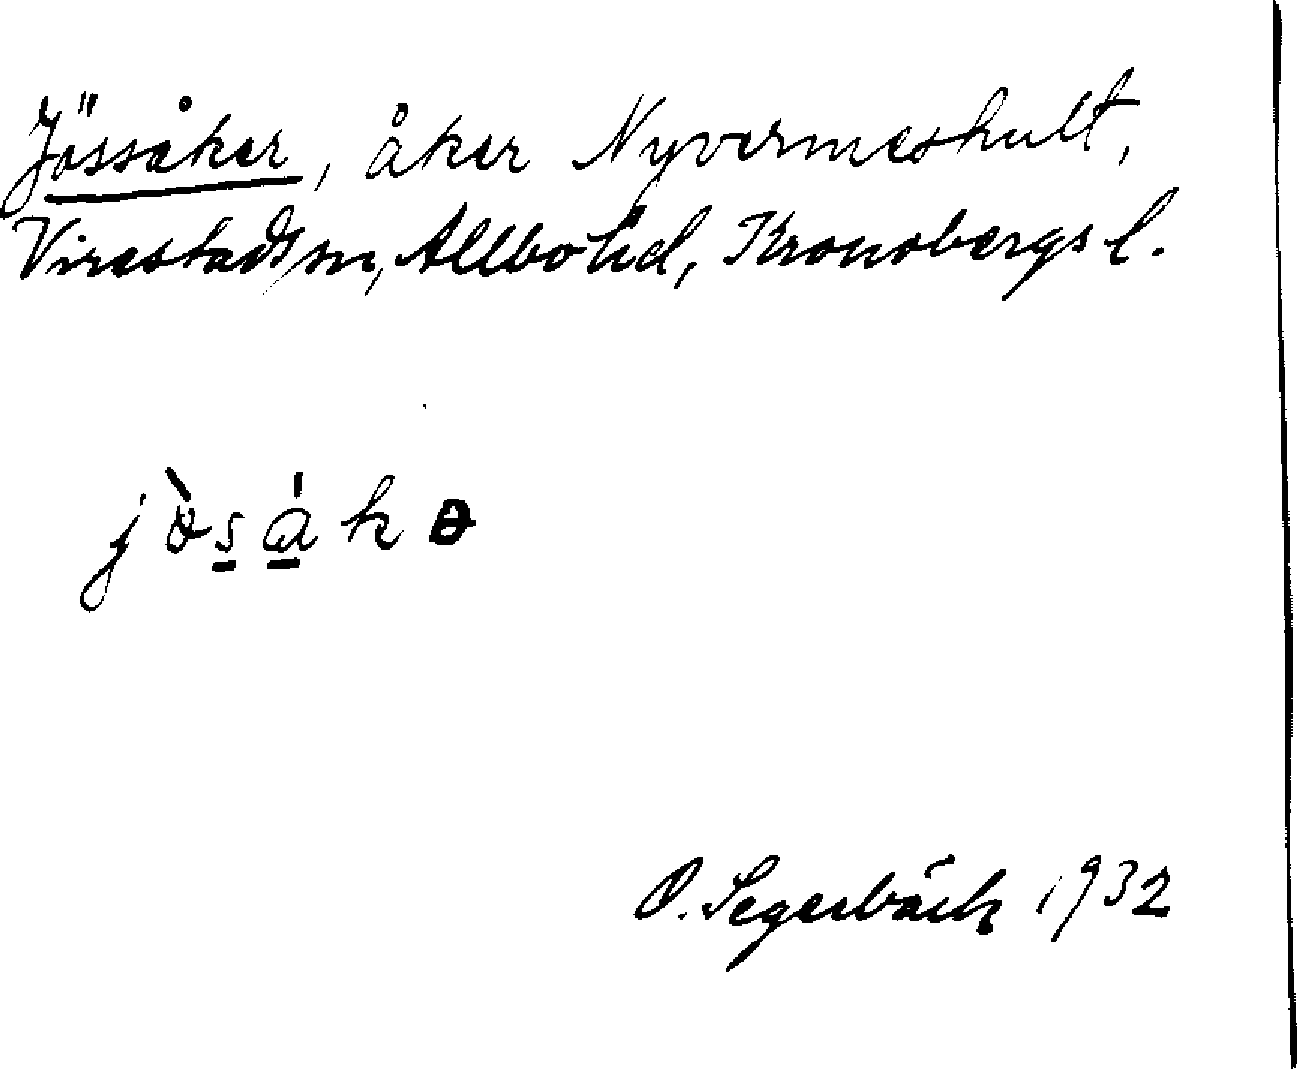 Jössåker, åker Nyvermeshult,
Virestads sn, Allbo hd, Kronobergs l.
O. Segerbäck 1932